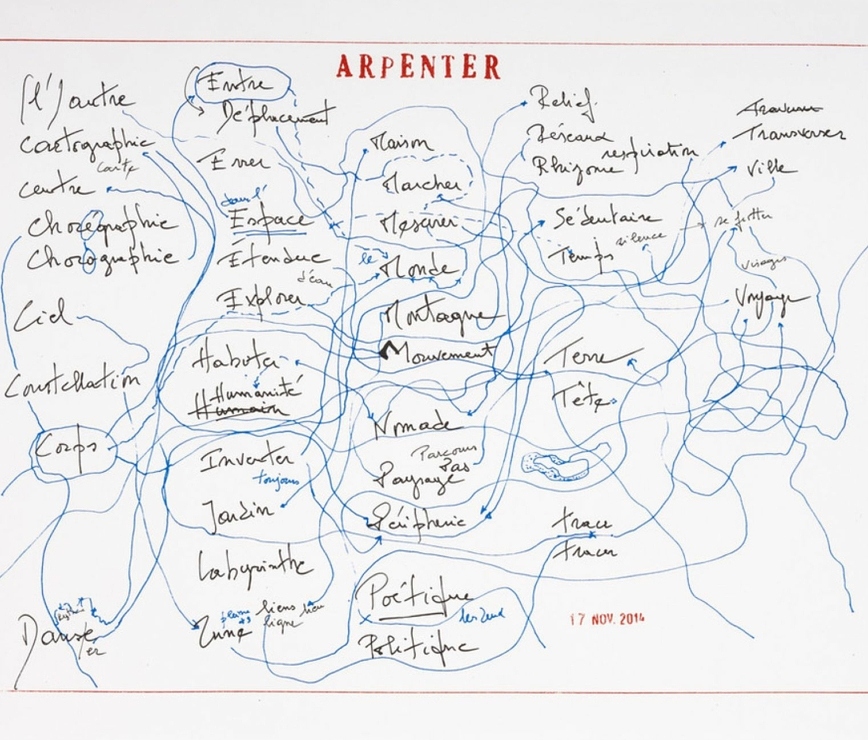 ARPENTER
(l')autre
Cartographie
carte
centre
Chorégraphie
Chorographie
Ciel
Constellation
Corps
Danse
er
Entre
Déplacement
Errer
dans l'
Espace
Étendue
d'eau
Explorer
Habiter
Humanité
Humain
Inventer
toujours
Jardin
Labyrinthe
liens lieu
ligne
Lune
Maison
Marcher
Mesurer
le
Monde
Montagne
Mouvement
Nomade
Parcours
Pas
Paysage
Périphérie
Poétique
les deux
Politique
Relief
Réseaux
Rhizome respiration
Sédentaire
silence
Temps
Terre
Tête
trace
tracer
17 NOV. 2014
Traverser
Ville
visages
Voyage